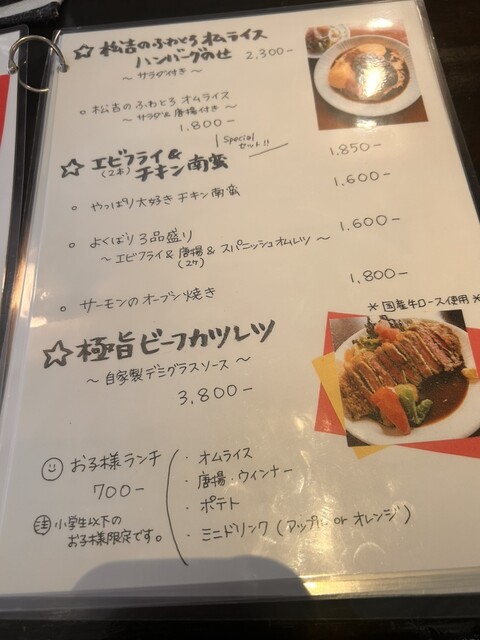 ☆ 松吉のふわとろオムライス
ハンバーグのせ 2,300-
～ サラダ付き ～
。松吉のふわとろ オムライス
～ サラダ & 唐揚付き ～
1,800-
☆ エビフライ & Special セット!! 1,850-
(2本) チキン南蛮
。やっぱり大好き チキン南蛮 1,600-
。よくばり 3品盛り 1,600-
～ エビフライ & 唐揚 & スパニッシュオムレツ ～
(2ケ)
。サーモンのオーブン焼き 1,800-
＊国産牛ロース使用＊
☆ 極旨ビーフカツレツ
～ 自家製デミグラスソース ～
3,800-
お子様ランチ
700-
注 小学生以下の
お子様限定です。
・オムライス
・唐揚・ウィンナー
・ポテト
・ミニドリンク (アップル or オレンジ)